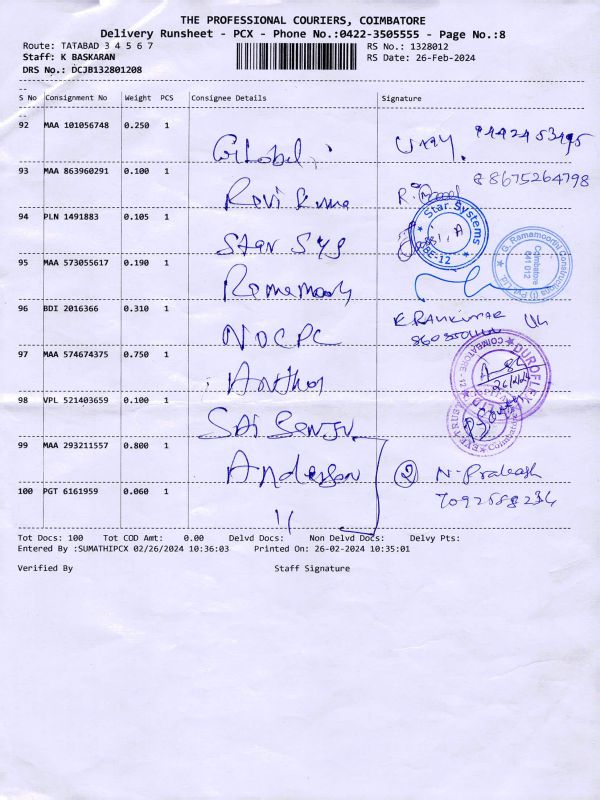 THE PROFESSIONAL COURIERS, COIMBATORE
Delivery Runsheet - PCX - Phone No.:0422-3505555 - Page No.:8
Route: TATABAD 3 4 5 6 7
RS No.: 1328012
Staff: K BASKARAN
RS Date: 26-Feb-2024
DRS No.: DCJB132801208
S No Consignment No Weight PCS Consignee Details Signature
92 MAA 101056748 0.250 1
93 MAA 863960291 0.100 1 8675264798
94 PLN 1491883 0.105 1 Star Sys
Star Systems
CBE-12
95 MAA 573055617 0.190 1
Ramamoorthi Constructions (I) Pvt Ltd
Coimbatore
641 012
96 BDI 2016366 0.310 1 NDCPC
97 MAA 574674375 0.750 1
DUROFLEX
COIMBATORE - 12
98 VPL 521403659 0.100 1
Coimbatore
99 MAA 293211557 0.800 1 Anderson 2 N. Prakash
100 PGT 6161959 0.060 1 "
Tot Docs: 100 Tot COD Amt: 0.00 Delvd Docs: Non Delvd Docs: Delvy Pts:
Entered By :SUMATHIPCX 02/26/2024 10:36:03 Printed On: 26-02-2024 10:35:01
Verified By Staff Signature